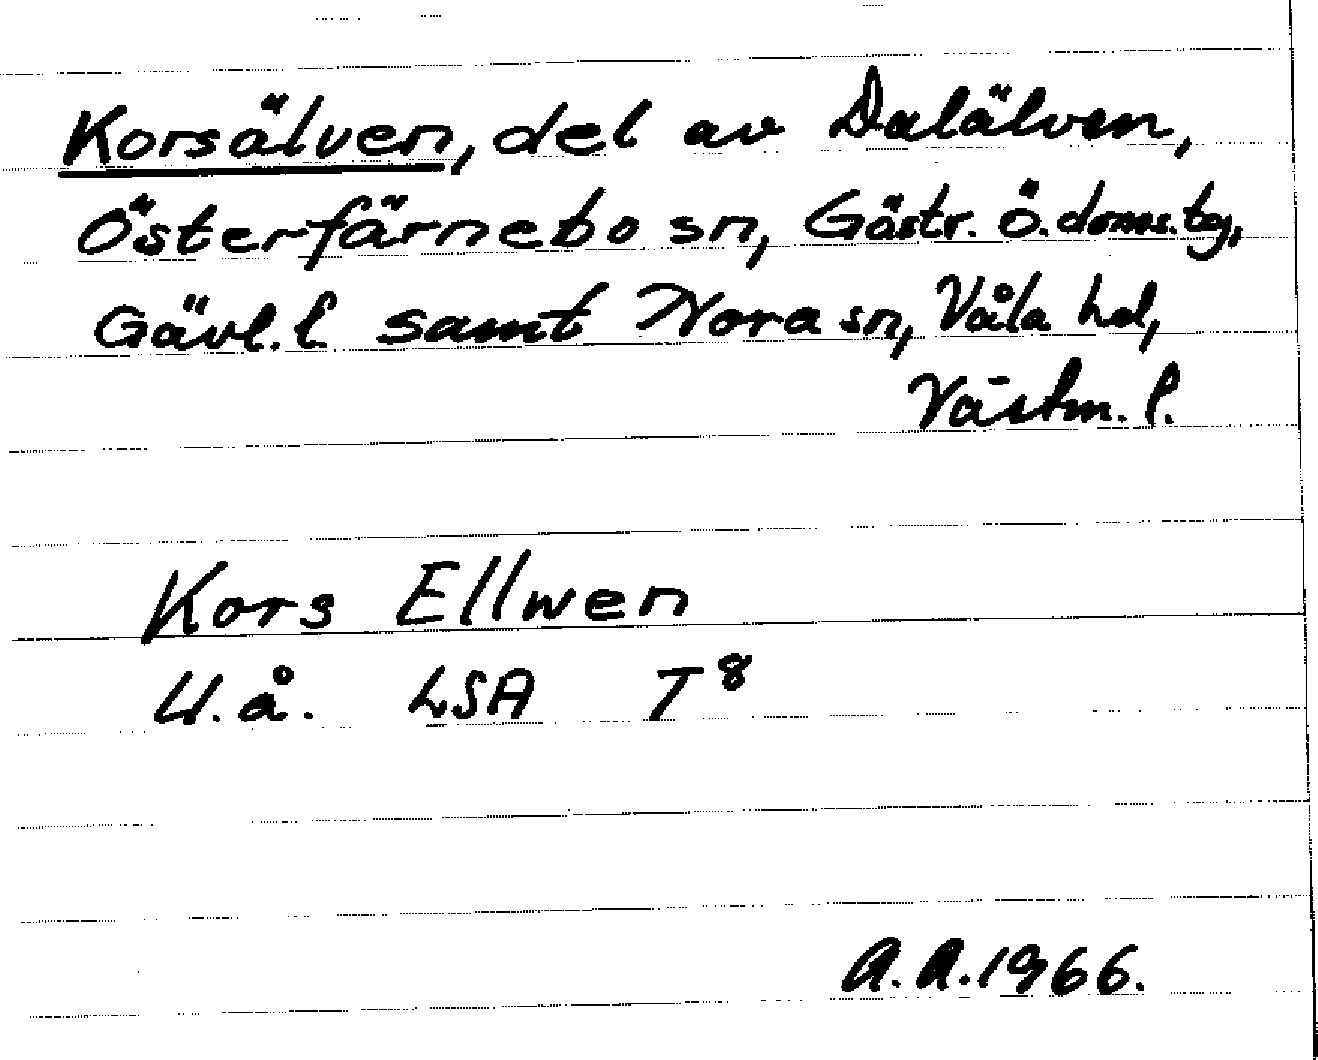 Korsälven, del av Dalälven,
Österfärnebo sn, Gästr. ö. doms. tg,
Gävl. l. samt Nora sn, Våla hd,
Västm. l.
Kors Ellwen
U.å. LSA T 8
A.A. 1966.